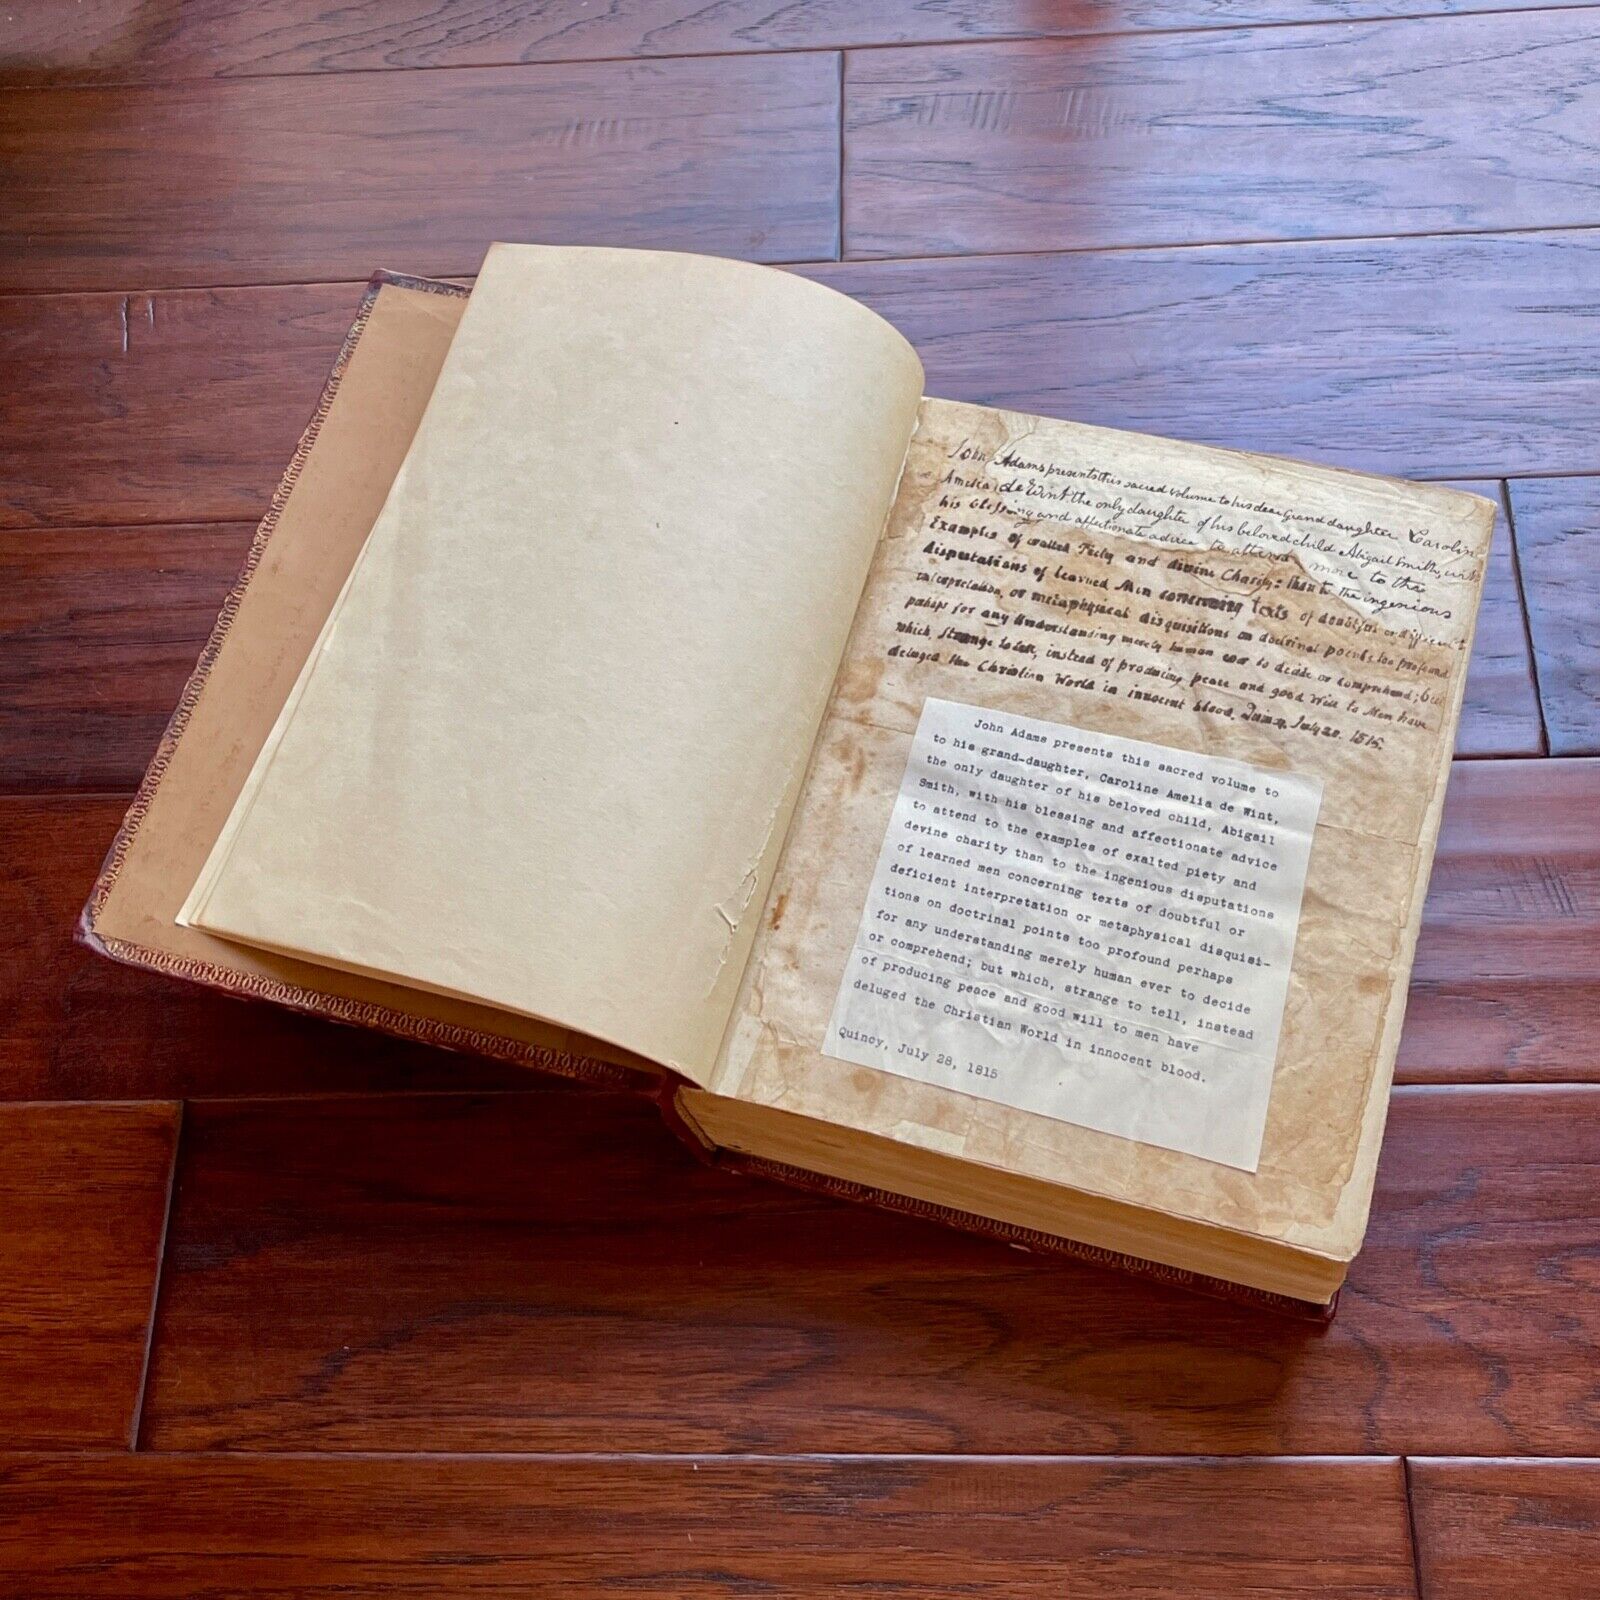 John Adams presents this sacred volume to his dear Grand daughter Carolin
Amelia de Wint the only daughter of his beloved child Abigail Smith, with
his blessing and affectionate advice to attend more to the
Examples of exalted Piety and divine Charity: than to the ingenious
disputations of learned Men concerning texts of doubtful or difficult
interpretation, or metaphysical disquisitions on doctrinal points too profound
perhaps for any Understanding merely human ever to decide or comprehend; but
which, strange to tell, instead of producing peace and good Will to Men have
deluged the Christian World in innocent blood. Quincy, July 28. 1815.
John Adams presents this sacred volume to
to his grand-daughter, Caroline Amelia de Wint,
the only daughter of his beloved child, Abigail
Smith, with his blessing and affectionate advice
to attend to the examples of exalted piety and
devine charity than to the ingenious disputations
of learned men concerning texts of doubtful or
deficient interpretation or metaphysical disquisi-
tions on doctrinal points too profound perhaps
for any understanding merely human ever to decide
or comprehend; but which, strange to tell, instead
of producing peace and good will to men have
deluged the Christian World in innocent blood.
Quincy, July 28, 1815